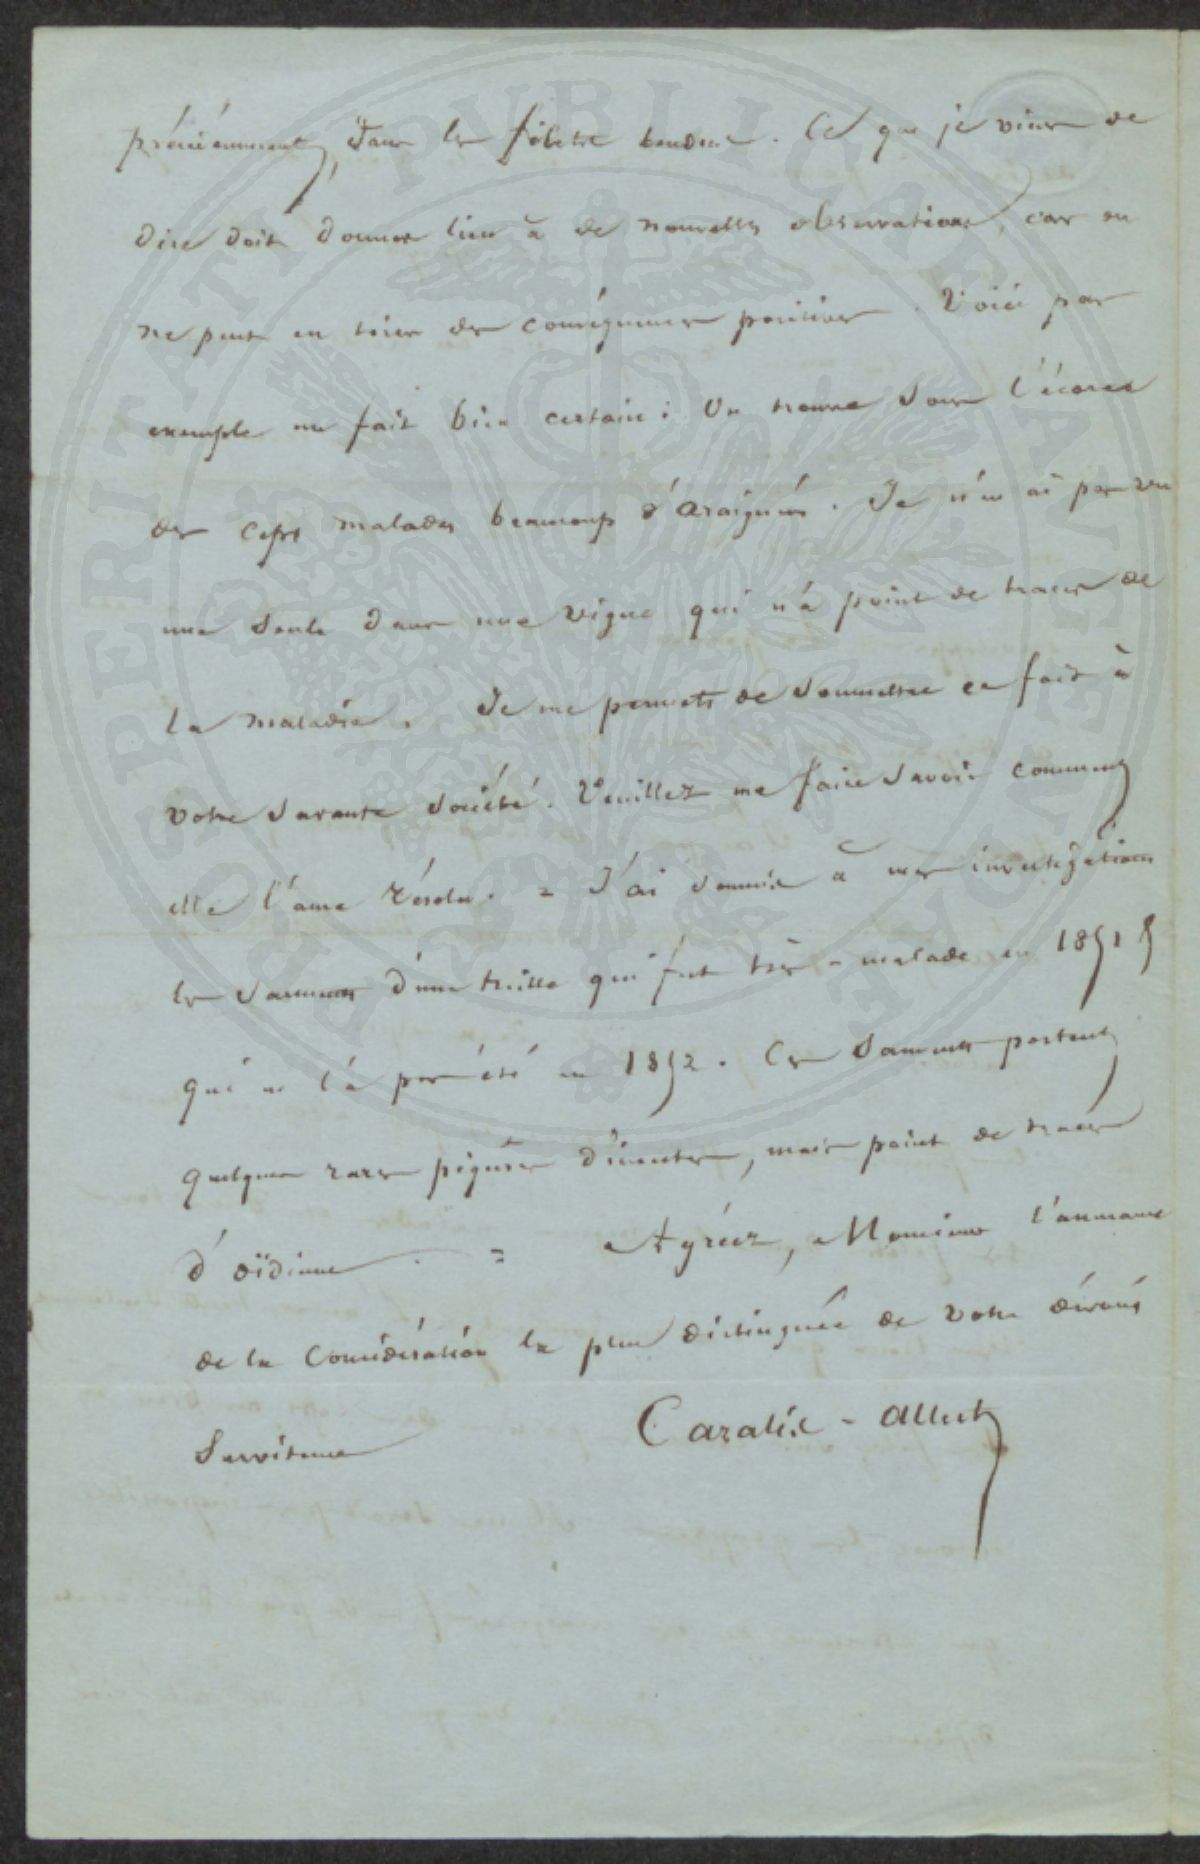 précisément, dans le filet de bandeur. Ce que je viens de
dire doit donner lieu à de nouvelles observations, car on
ne peut en tirer des conséquences positives. Voici par
exemple un fait bien certain : On trouve sous l'écorce
des ceps malades beaucoup d'araignées. Je n'en ai pas vu
une seule dans une vigne qui n'a point de traces de
la maladie. Je me permets de soumettre ce fait à
votre savante société. Veuillez me faire savoir comment
elle l'aura résolu. = J'ai soumis à mes investigations
les sarments d'une treille qui fut très-malade en 1851 &
qui ne l'a pas été en 1852. Ces sarments portent
quelques rares piqûres d'insectes, mais point de traces
d'oïdium. = Agréez, Monsieur l'assurance
de la considération la plus distinguée de votre dévoué
Serviteur
PROSPERITATI PUBLICAE AUGENDAE